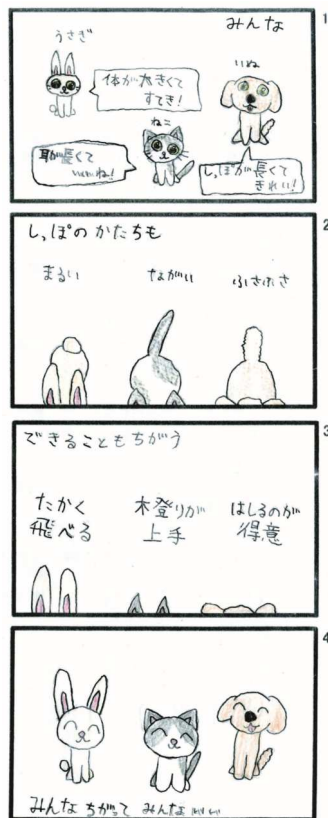 みんな
1
うさぎ
いぬ
体が大きくて
すてき！
ねこ
耳が長くて
いいね！
しっぽが長くて
きれい！
2
しっぽのかたちも
まるい
ながい
ふさふさ
3
できることもちがう
たかく
飛べる
木登りが
上手
はしるのが
得意
4
みんなちがって みんないい